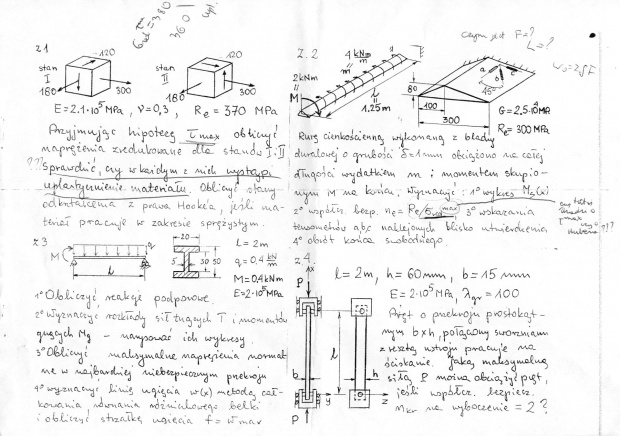 z1
120
stan
I
180
300
120
stan
II
180
300
E = 2.1·10⁵ MPa, ν = 0,3, Re = 370 MPa
Przyjmując hipotezę τmax obliczyć
naprężenia zredukowane dla stanów I i II
Sprawdzić, czy w każdym z nich wystąpi
uplastycznienie materiału. Obliczyć stany
odkształcenia z prawa Hooke'a, jeśli ma-
teriał pracuje w zakresie sprężystym.
z3
M
q
l
20
5
30
50
l = 2m
q = 0,4 kN/m
M = 0,4 kNm
E = 2·10⁵ MPa
1° Obliczyć reakcje podporowe.
2° Wyznaczyć rozkłady sił tnących T i momentów
gnących Mg – narysować ich wykresy.
3° Obliczyć maksymalne naprężenia normal-
ne w najbardziej niebezpiecznym przekroju
4° wyznaczyć linię ugięcia w(x) metodą cał-
kowania równania różniczkowego belki
i obliczyć strzałkę ugięcia f = wmax
z.2
2 kNm
M
4 kNm/m
m
l
1.25m
czym jest F = ?
L = ?
80
100
300
a
b
c
45°
G = 2,5·10⁴ MPa
Re = 300 MPa
Rurę cienkościenną wykonaną z blachy
duralowej o grubości δ = 1mm obciążono na całej
długości wydatkiem m i momentem skupio-
nym M na końcu. Wyznaczyć: 1° wykres Ms(x)
2° współcz. bezp. ne = Re/σred max 3° wskazania
tensometrów abc naklejonych blisko utwierdzenia
4° obrót końca swobodnego.
z4.
x
P
l
b
h
y
z
P
l = 2m, h = 60mm, b = 15mm
E = 2·10⁵ MPa, λgr = 100
Pręt o przekroju prostokąt-
nym b×h, połączony sworzniami
z resztą ustroju pracuje na
ściskanie. Jaką maksymalną
siłą P można obciążyć pręt,
jeśli współcz. bezpiecz.
nkr na wyboczenie = 2?